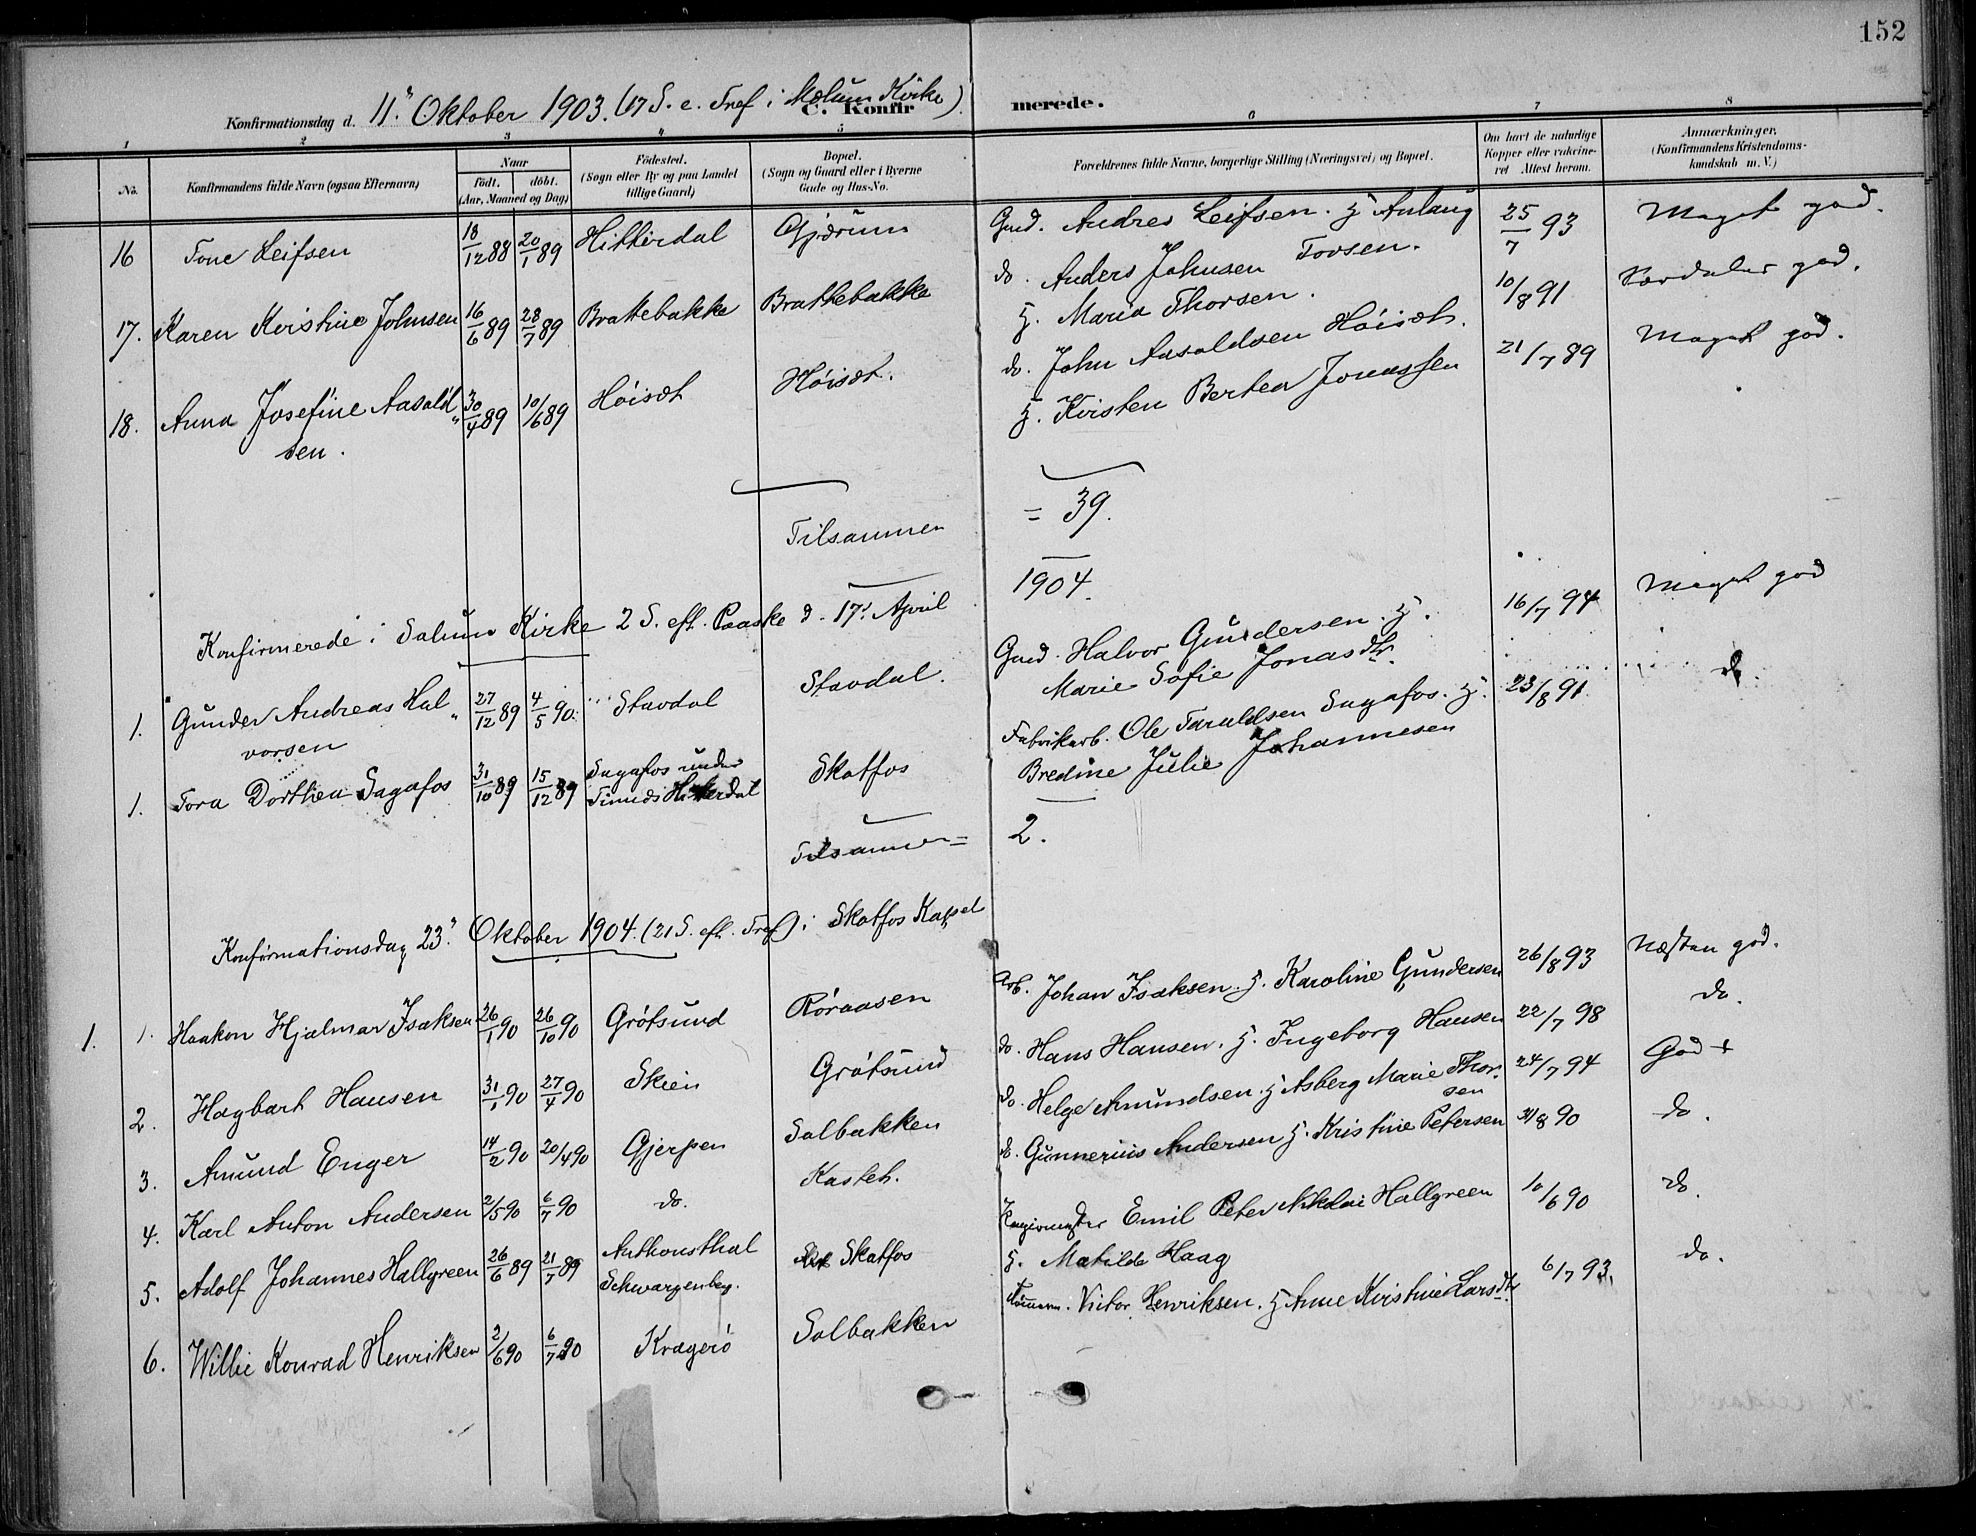 152
Konfirmationsdag d. 11' Oktober 1903. (17 S. e. Tref i Melum Kirke).
C. Konfirmerede.
1 2 3 4 5 6 7 8
No.
Konfirmandens fulde Navn (ogsaa Efternavn)
Naar
født. døbt.
(Aar, Maaned og Dag)
Fødested.
(Sogn eller By og paa Landet
tillige Gaard)
Bopæl.
(Sogn og Gaard eller i Byerne
Gade og Hus-No.
Forældrenes fulde Navne, borgerlige Stilling (Næringsvei) og Bopæl.
Om havt de naturlige
Kopper eller vaksine-
ret Attest herom.
Anmærkninger,
(Konfirmandens Kristendoms-
kundskab m. V.)
16 Tone Leifsen 18/12 88 20/1 89 Hitterdal Gjærum Gmd. Andres Leifsen. H Anlaug Tovsen. 25/7 93 Meget god.
17. Karen Kristine Johnsen 16/6 89 28/7 89 Brattebakke Brattebakke do. Anders Johnsen H. Maria Thorsen. 10/8 91 god.
18. Anna Josefine Aasold"sen. 30/4 89 10/6 89 Høisæt Høisæt. do. John Aasoldsen Høisæt. H. Kristen Bertea Jonassen 21/7 89 Meget god.
Tilsammen = 39.
1904.
Konfirmerede i Solum Kirke 2 S. eft. Paaske d. 17' April
1. Gunder Andreas Hal"vorsen 27/12 89 4/5 90. Stavdal Stavdal. Gmd. Halvor Gundersen. H. Marie Sofie Jonasdtr. 16/7 94 Meget god
1. Tora Dorthea Sagafos 31/10 89 15/12 89 Sagafos under Tinnes Hitterdal Skotfos Fabrikarb. Ole Taraldsen Sagafos. H. Bredine Julie Johannesen 23/8 91. do.
Tilsammen = 2.
Konfirmationsdag 23' Oktober 1904. (21 S. eft. Tref) i Skotfos Kapel
1. 1. Haakon Hjalmar Isaksen 26/1 90 26/10 90 Grøtsund Røraasen Arb. Johan Isaksen. H. Karoline Gundersen 26/8 93 Næsten god.
2. Hagbart Hansen 31/1 90 27/4 90 Skien Grøtsund do. Hans Hansen. H. Ingeborg Hansen 22/7 98 do.
3. Amund Enger 14/2 90 20/4 90 Gjerpen Solbakken do. Helge Amundsen. H Asberg Marie Thorsen 24/7 94 God +
4. Karl Anton Andersen 2/5 90 6/7 90 do. Kasteh. do. Gunnerius Andersen H. Kristine Petersen 31/8 90 do.
5. Adolf Johannes Hallgreen 26/6 89 21/7 89 Anthonsthal Schwarzenberg. Skotfos Emil Peter Nikolai Hallgreen H. Matilde Haag 10/6 90 do.
6. Willie Konrad Henriksen 2/6 90 6/7 90 Kragerø Solbakken Tømmerm. Victor Henriksen. H Anne Kirstine Larsdtr 6/7 93. do.